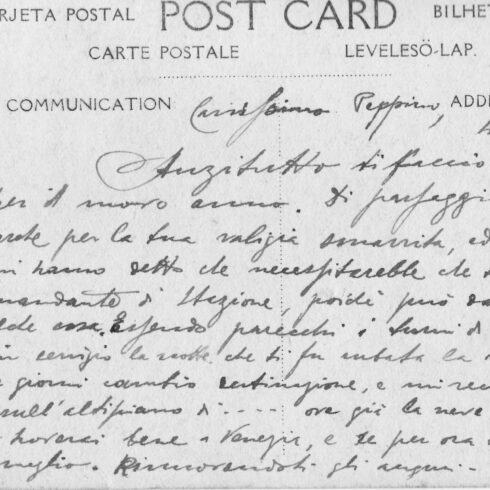 RJETA POSTAL POST CARD BILHE
CARTE POSTALE LEVELESÖ-LAP.
COMMUNICATION Carissimo Peppino, ADD
Anzitutto ti faccio
per il nuovo anno. Di passaggi
per la tua valigia smarrita, ed
mi hanno detto che necessiterebbe che
mandante di Stazione, poiché può
cosa. Essendo parecchi i turni di
in servizio la notte che ti fu rubata la
giorni cambio destinazione, e mi
sull'altipiano di .... ove già la neve
troverai bene a Venezia, e se per ora
meglio. Rinnovandoti gli auguri..